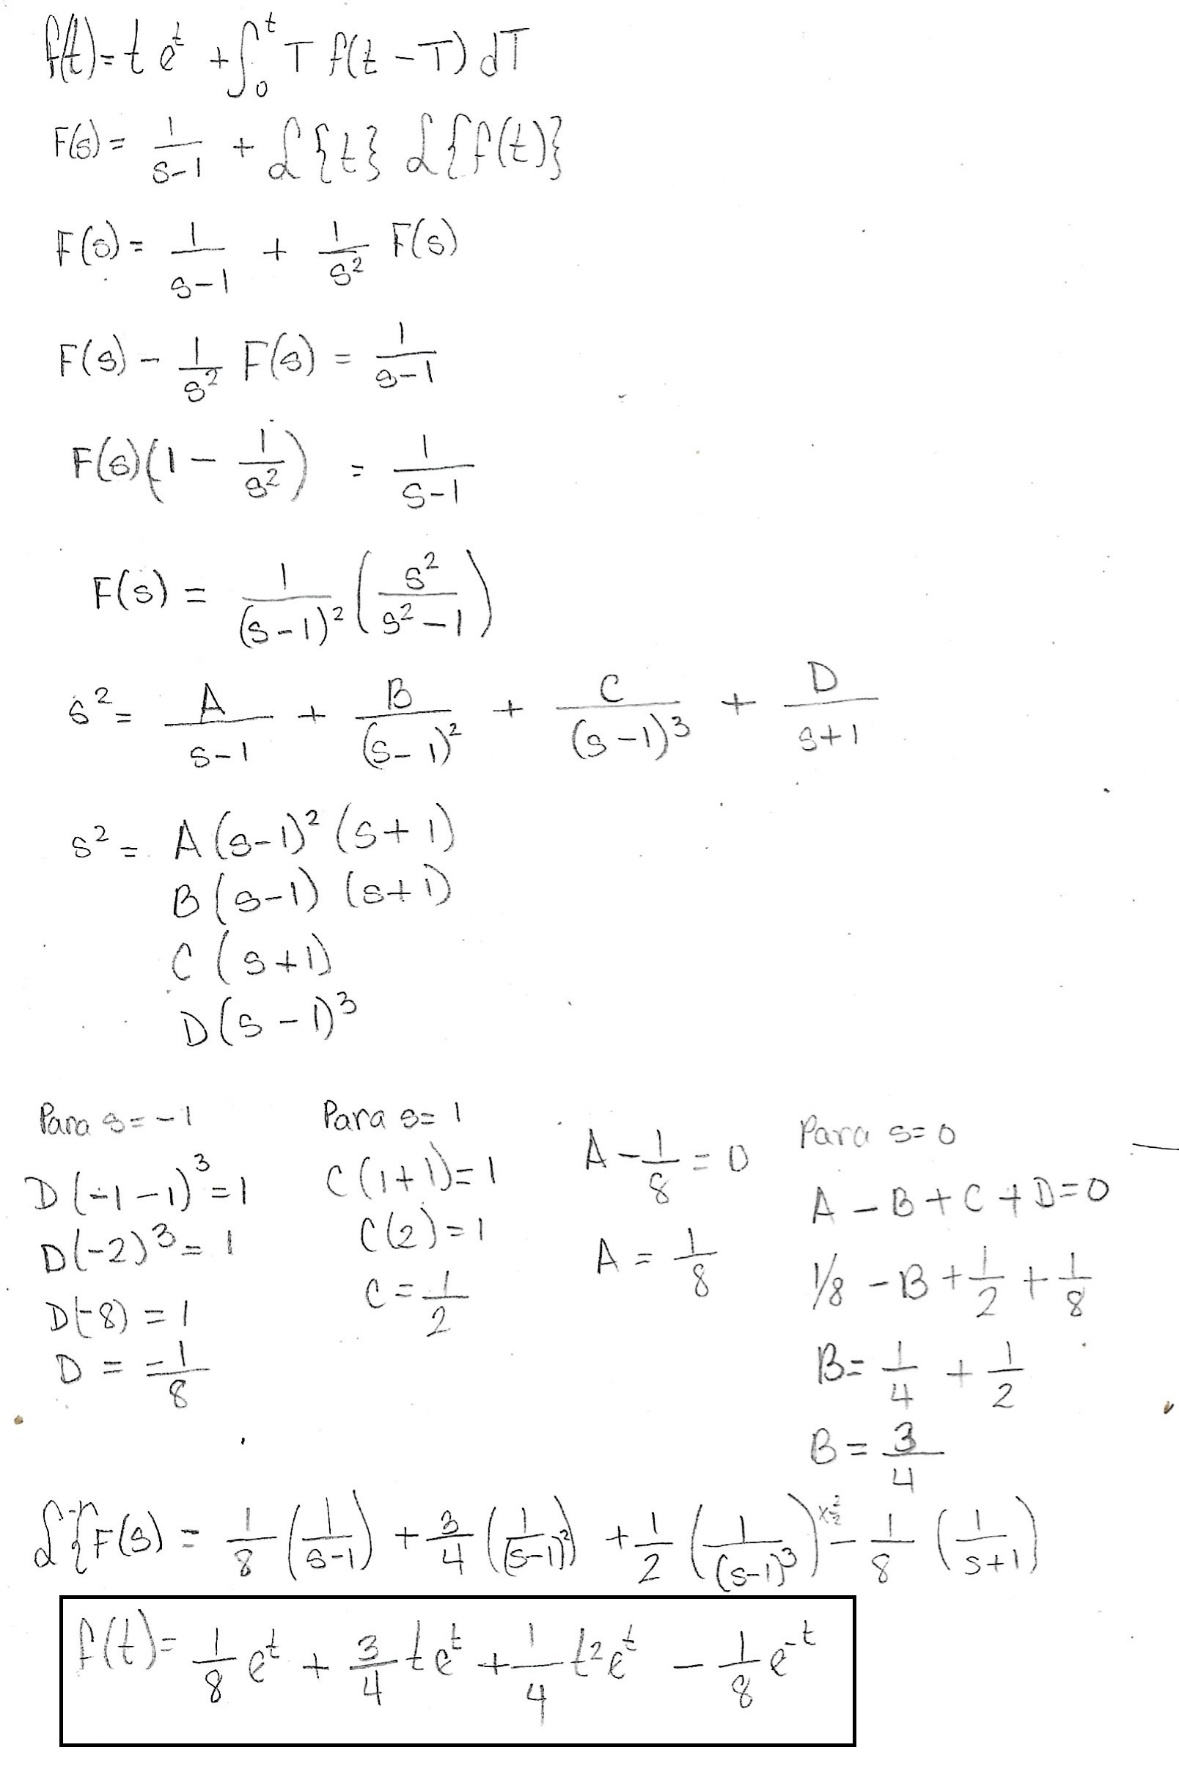 f(t)= t e^t + ∫_0^t T f(t - T) dT
F(s) = 1/(s-1) + ℒ{t} ℒ{f(t)}
F(s) = 1/(s-1) + 1/s² F(s)
F(s) - 1/s² F(s) = 1/(s-1)
F(s)(1 - 1/s²) = 1/(s-1)
F(s) = 1/(s-1)² (s²/(s²-1))
s² = A/(s-1) + B/(s-1)² + C/(s-1)³ + D/(s+1)
s² = A(s-1)² (s+1)
B(s-1) (s+1)
C (s+1)
D(s-1)³
Para s=-1
D(-1-1)³=1
D(-2)³=1
D(-8) = 1
D = -1/8
Para s=1
C(1+1)=1
C(2)=1
C=1/2
A-1/8=0
A = 1/8
Para s=0
A - B + C + D=0
1/8 - B + 1/2 + 1/8
B= 1/4 + 1/2
B = 3/4
F(s) = 1/8 (1/(s-1)) + 3/4 (1/(s-1)²) + 1/2 (1/(s-1)³) x 2/2 - 1/8 (1/(s+1))
f(t)= 1/8 e^t + 3/4 te^t + 1/4 t²e^t - 1/8 e^-t